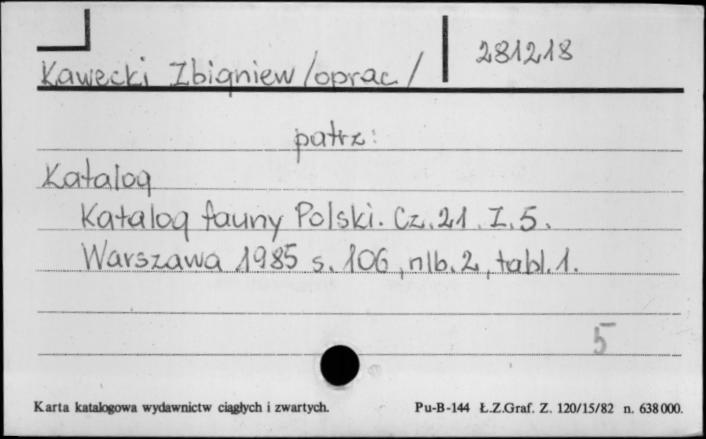 Kawecki Zbigniew /oprac/ 281218
patrz:
Katalog
Katalog fauny Polski. Cz. 21. Z. 5.
Warszawa 1985 s. 106, nlb. 2, tabl. 1.
5
Karta katalogowa wydawnictw ciągłych i zwartych. Pu-B-144 Ł.Z.Graf. Z. 120/15/82 n. 638000.